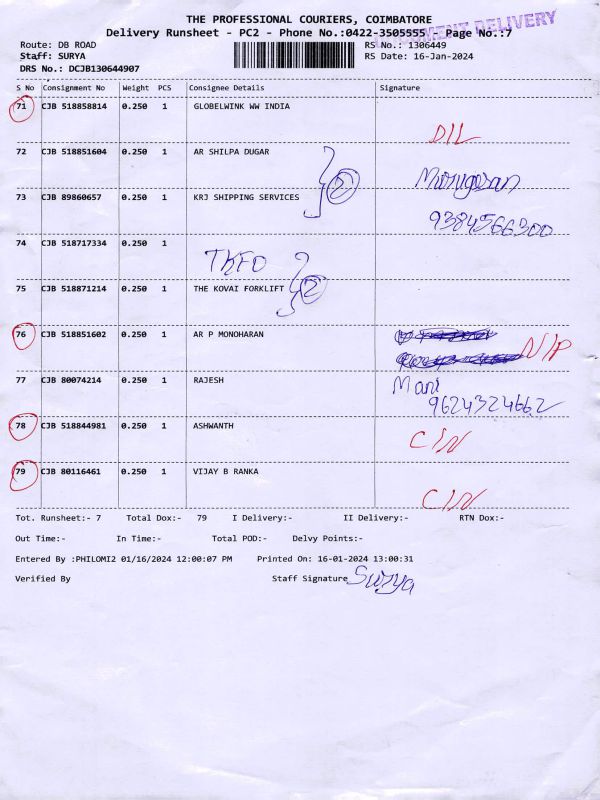 THE PROFESSIONAL COURIERS, COIMBATORE
DOCUMENT DELIVERY
Delivery Runsheet - PC2 - Phone No.:0422-3505555 - Page No.:7
Route: DB ROAD RS No.: 1306449
Staff: SURYA RS Date: 16-Jan-2024
DRS No.: DCJB130644907
S No Consignment No Weight PCS Consignee Details Signature
71 CJB 518858814 0.250 1 GLOBELWINK WW INDIA
D/L
72 CJB 518851604 0.250 1 AR SHILPA DUGAR
2 Murugesan
73 CJB 89860657 0.250 1 KRJ SHIPPING SERVICES
9384566300
74 CJB 518717334 0.250 1
TKFO
75 CJB 518871214 0.250 1 THE KOVAI FORKLIFT 2
76 CJB 518851602 0.250 1 AR P MONOHARAN
N/P
77 CJB 80074214 0.250 1 RAJESH Mani
9624324662
78 CJB 518844981 0.250 1 ASHWANTH
C/N
79 CJB 80116461 0.250 1 VIJAY B RANKA
C/N
Tot. Runsheet:- 7 Total Dox:- 79 I Delivery:- II Delivery:- RTN Dox:-
Out Time:- In Time:- Total POD:- Delvy Points:-
Entered By :PHILOMI2 01/16/2024 12:00:07 PM Printed On: 16-01-2024 13:00:31
Verified By Staff Signature Surya